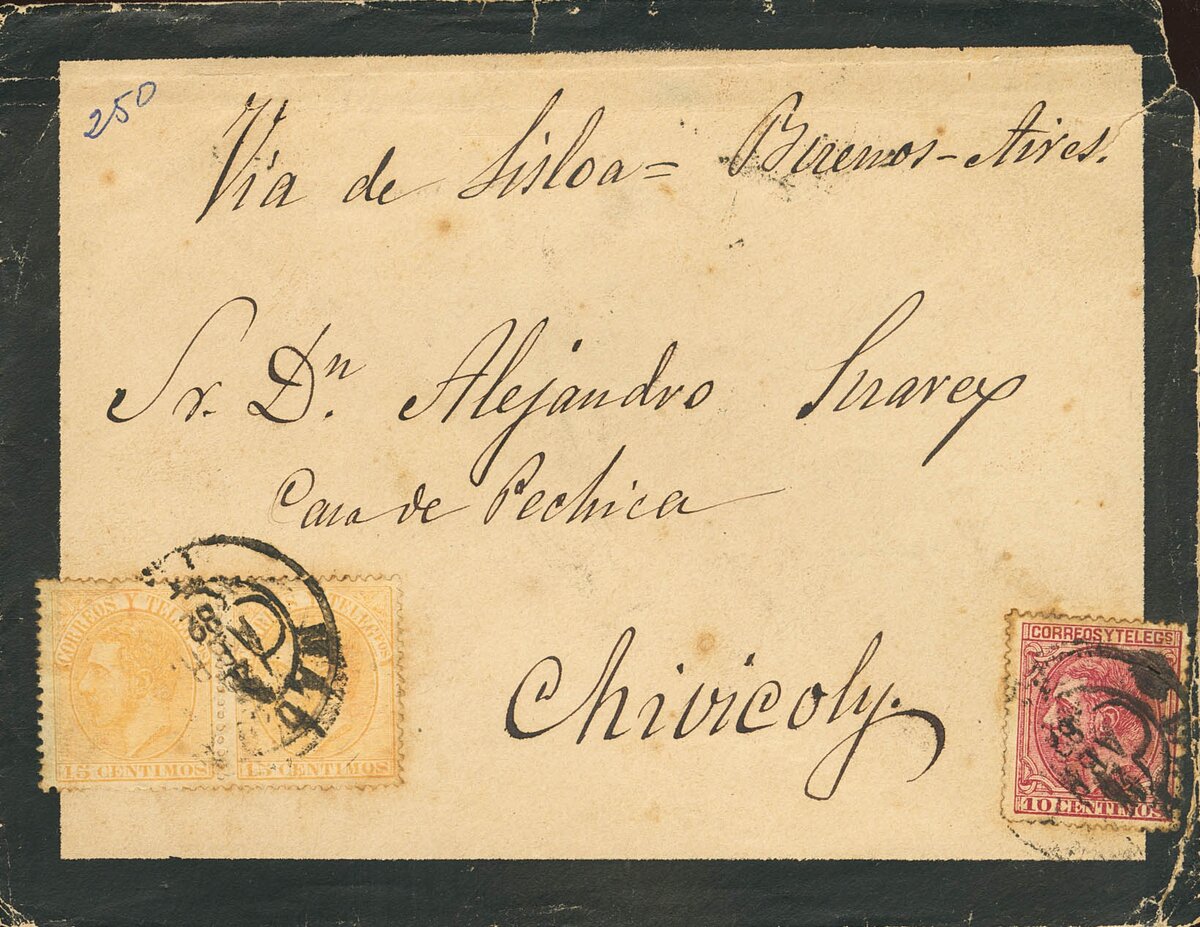 250
Via de Lisloa = Buenos-Aires.
Sr. Dn. Alejandro Suarez
Casa de Pechica
Chivicoly.
CORREOS Y TELEGS
15 CENTIMOS
15 CENTIMOS
CORREOS Y TELEGS
10 CENTIMOS